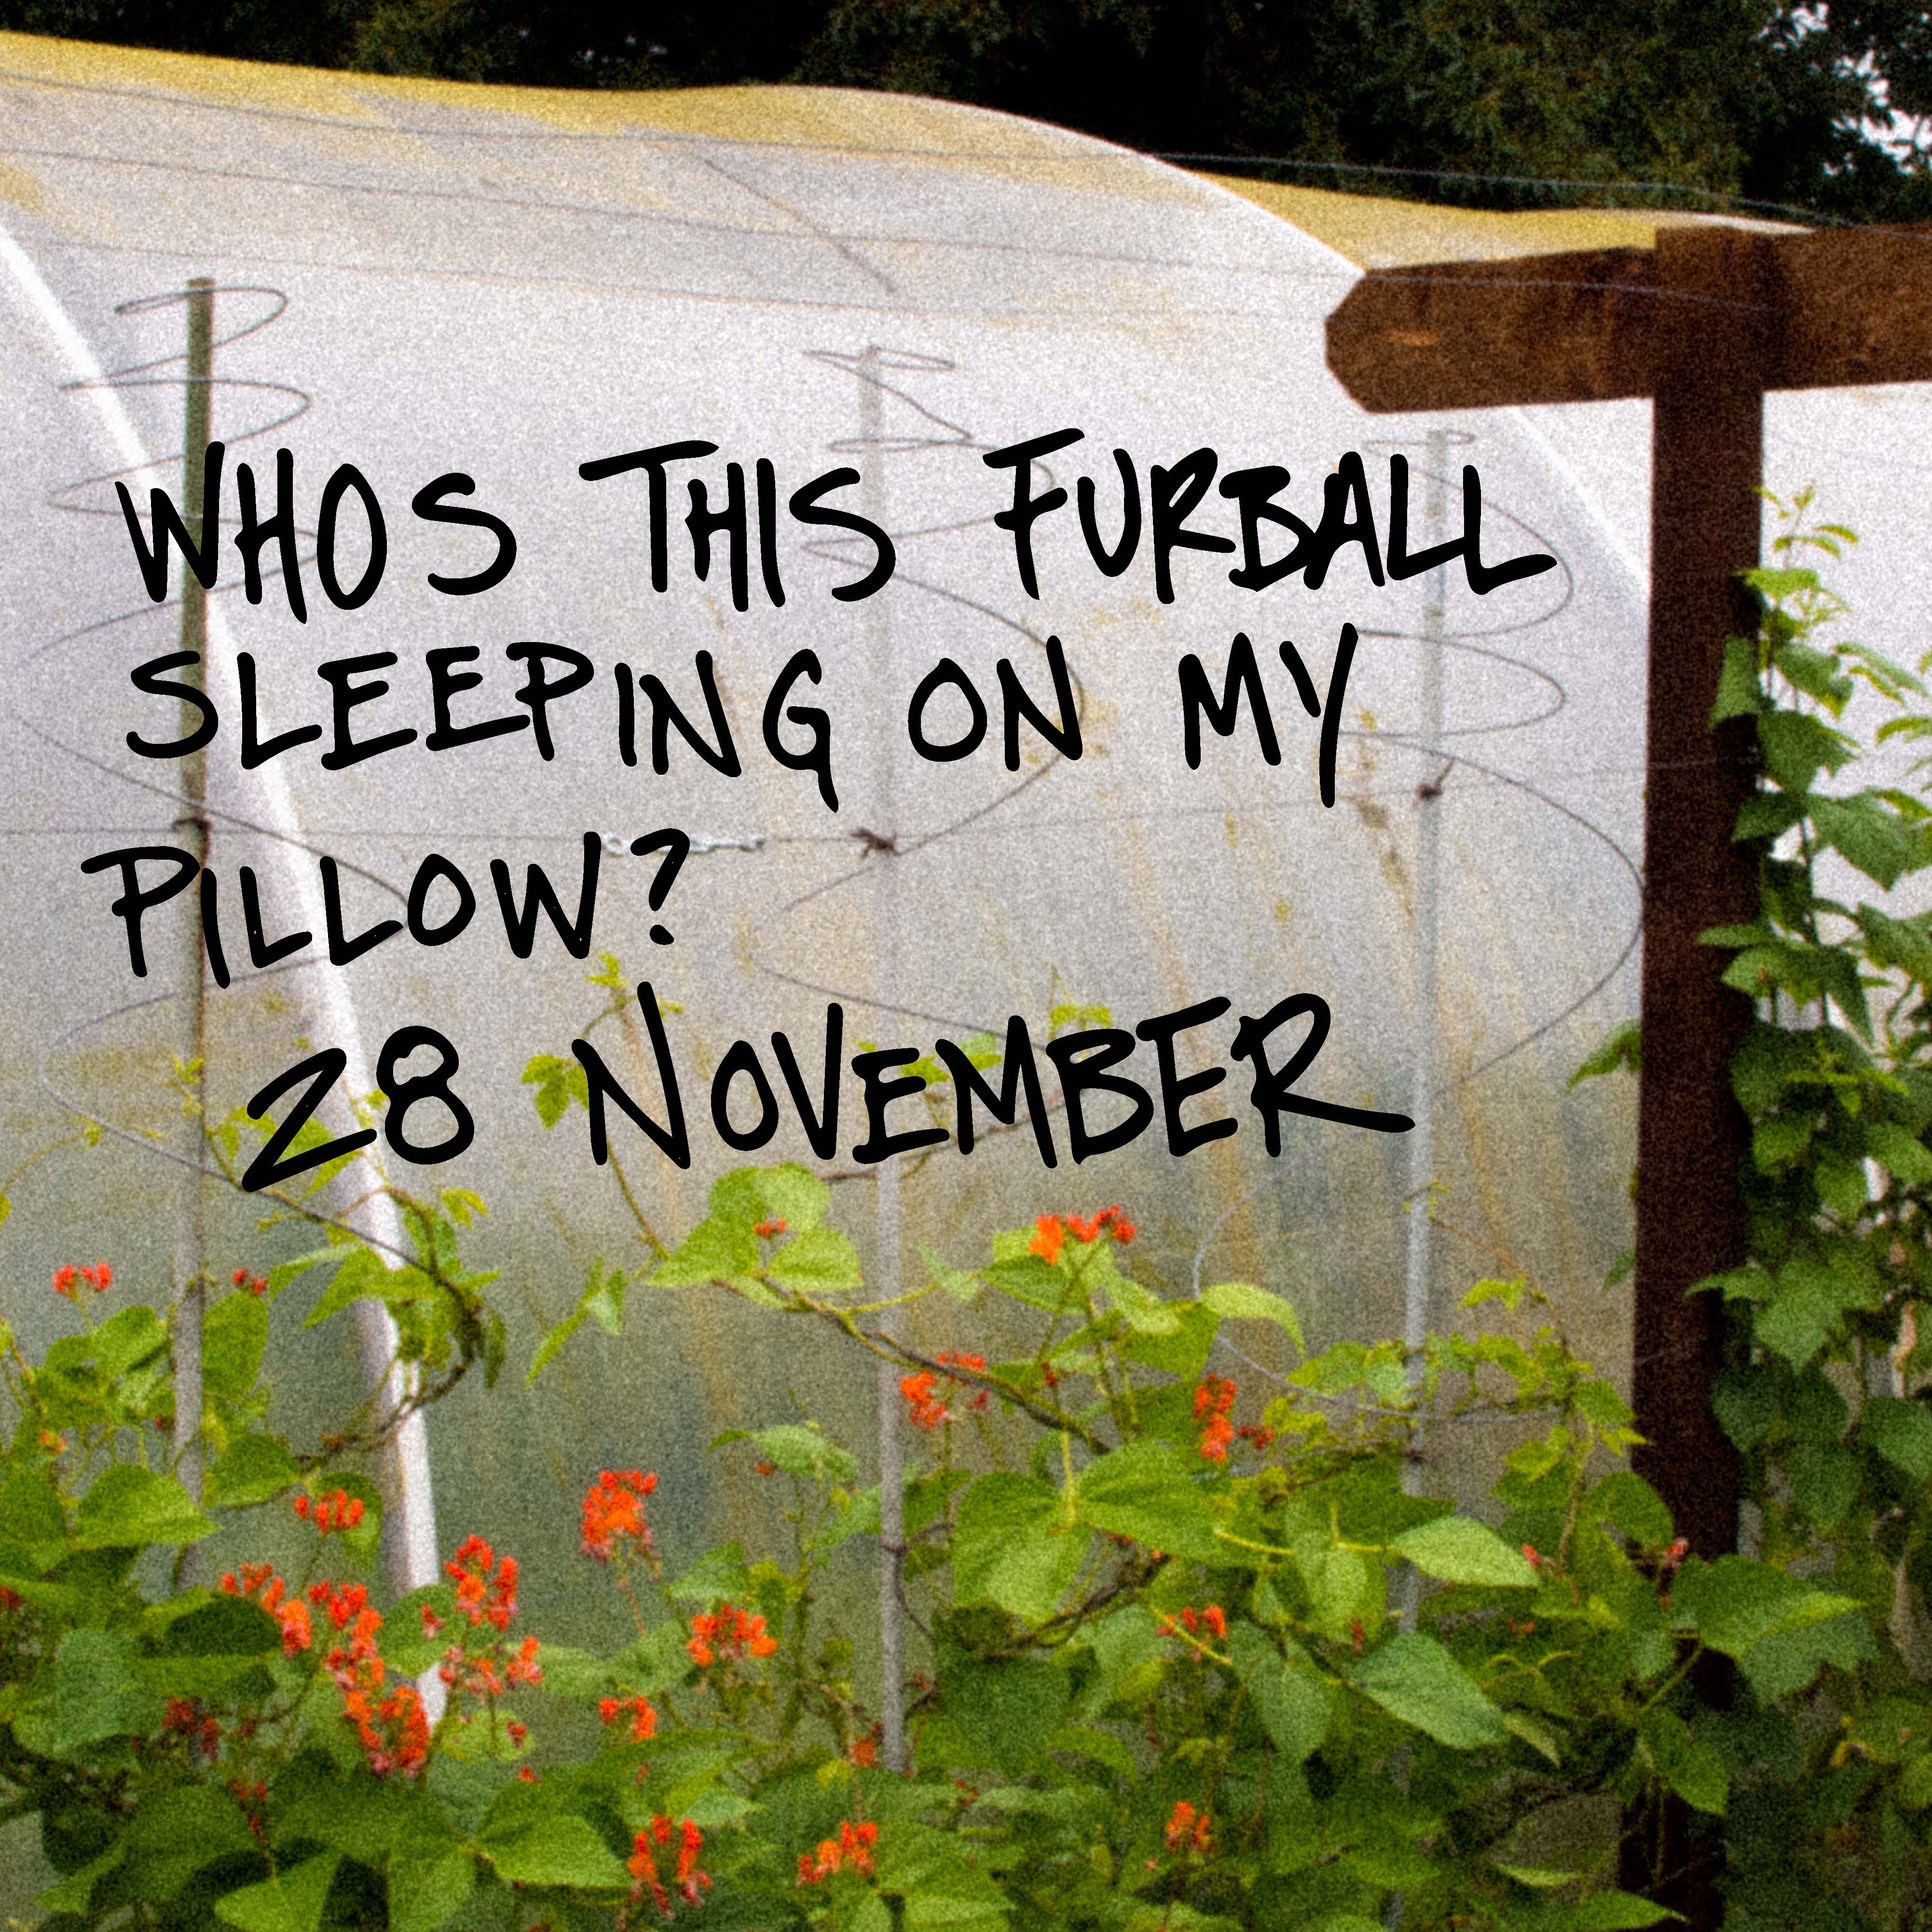 WHOS THIS FURBALL
SLEEPING ON MY
PILLOW?
28 NOVEMBER